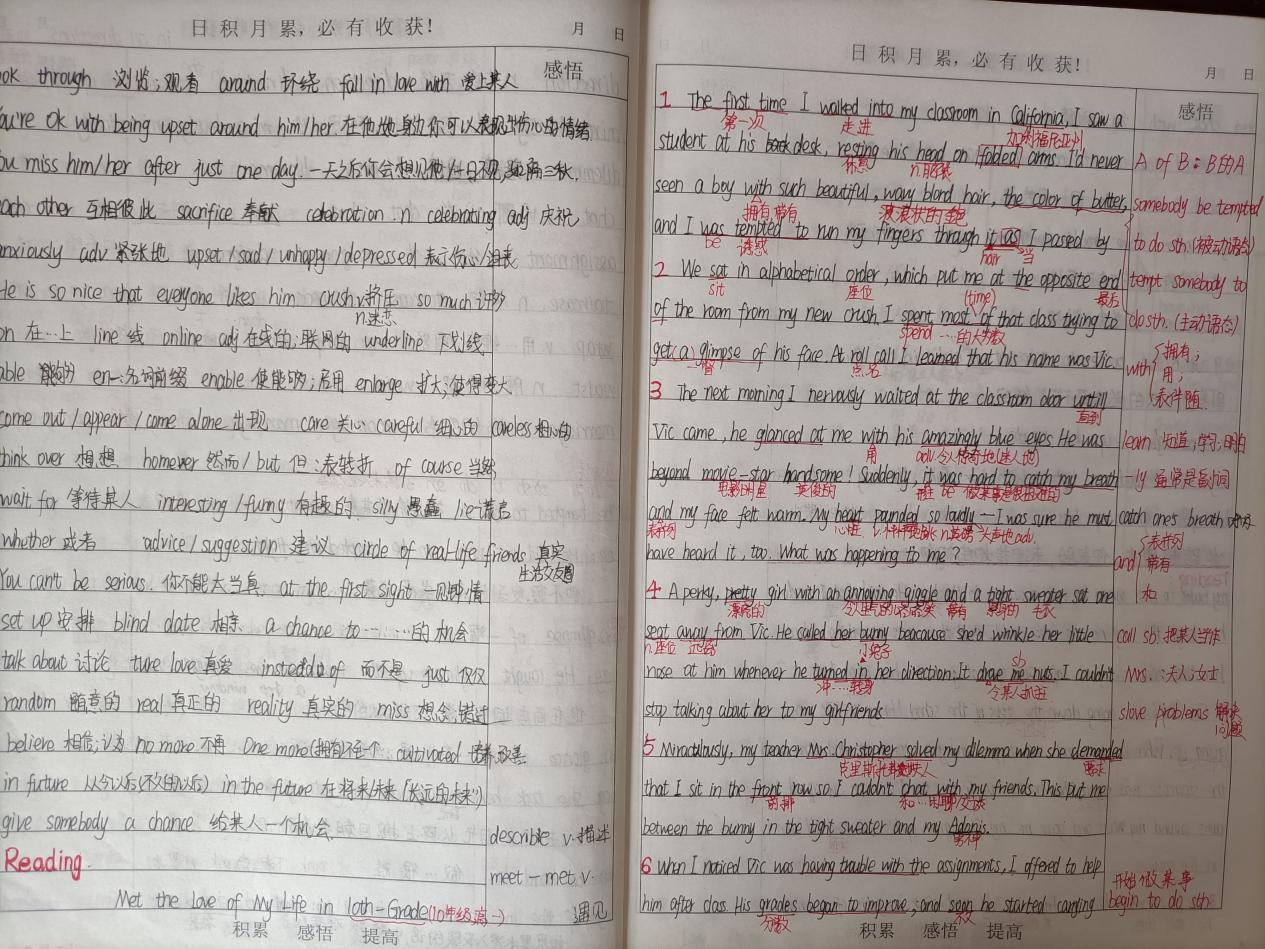 日积月累，必有收获！ 月 日
感悟
ok through 浏览；观看 around 环绕 fall in love with 爱上某人
ou're ok with being upset around him/her. 在他/她身边你可以表现出伤心的情绪
ou miss him/her after just one day. 一天之后你会想见他/一日不见,如隔三秋.
ach other 互相彼此 sacrifice 奉献 celebration .n celebrating adj 庆祝
anxiously adv 紧张地 upset/sad/unhappy/depressed 表示伤心/沮丧
He is so nice that everyone likes him crush v.挤压 so much 许多
n.迷恋
on 在…上 line 线 online adj 在线的;联网的 underline 下划线
able 能够的 en-:名词前缀 enable 使能够;启用 enlarge 扩大;使得变大
come out/appear/come alone 出现 care 关心 careful 细心的 careless 粗心的
think over 想想 however 然而/but 但:表转折 of course 当然
wait for 等待某人 interesting/funny 有趣的 silly 愚蠢 lie 谎言
whether 或者 advice/suggestion 建议 circle of real-life friends 真实
生活交友圈
You can't be serious. 你不能太当真 at the first sight 一见钟情
set up 安排 blind date 相亲 a chance to……的机会
talk about 讨论 ture love 真爱 instead of 而不是 just 仅仅
random 随意的 real 真正的 reality 真实的 miss 想念,错过
believe 相信;认为 no more 不再 One more(拥有)不至一个 cultivated 培养,改善
in future 从今以后 in the future 在将来/未来「长远的未来」
give somebody a chance 给某人一个机会
describle v.描述
Reading.
meet-met v.
Met the love of My Life in 10th-Grade(10年级高一) 遇见
积累 感悟 提高
日积月累，必有收获！ 月 日
感悟
1 The first time I walked into my classroom in California, I saw a
第一次 走进 加利福尼亚州
student at his desk, resting his head on folded arms. I'd never
A of B: B的A
休息
seen a boy with such beautiful, wavy blond hair, the color of butter,
somebody be tempted
拥有,带有 波浪状的金色
and I was tempted to run my fingers through it as I passed by
to do sth (被动语态)
be 诱惑 hair 当
2 We sat in alphabetical order, which put me at the opposite end
tempt somebody to
sit 座位 (time) 最后
of the room from my new crush. I spent most of that class trying to
do sth. (主动语态)
spend …的大多数
get (a) glimpse of his face. At roll call I learned that his name was Vic.
with 拥有; 用; 表伴随.
瞥 点名
3 The next morning I nervously waited at the classroom door until
直到
Vic came, he glanced at me with his amazingly blue eyes. He was
learn 知道;学习;明白
用 adv 令人惊奇地(迷人地)
beyond movie-star handsome! Suddenly, it was hard to catch my breath
-ly 通常是副词
电影明星 英俊的
and my face felt warm. My heart pounded so loudly—I was sure he must
catch one's breath
表并列 心脏 大声地 adv.
have heard it, too. What was happening to me?
and 表并列 带有 和
4 A perky, pretty girl with an annoying giggle and a tight sweater sat one
漂亮的 带有 紧身的 毛衣
seat away from Vic. He called her bunny beacause she'd winkle her little
call sb: 把某人当作
n.座位 远离 小兔子
nose at him whenever he turned in her direction. It drove me nuts. I couldn't
Mrs. :夫人;女士
冲…转身 sb 令某人抓狂
stop talking about her to my girlfriends.
slove problems 解决
问题
5 Miraculously, my teacher Mrs. Christopher solved my dilemma when she demanded
要求
that I sit in the front row so I couldn't chat with my friends. This put me
前排 和…闲聊/交谈
between the bunny in the tight sweater and my Adonis.
男神
6 When I noticed Vic was having trouble with the assignments, I offered to help
开始做某事
him after class. His grades began to improve, and soon he started carrying
begin to do sth
分数
积累 感悟 提高